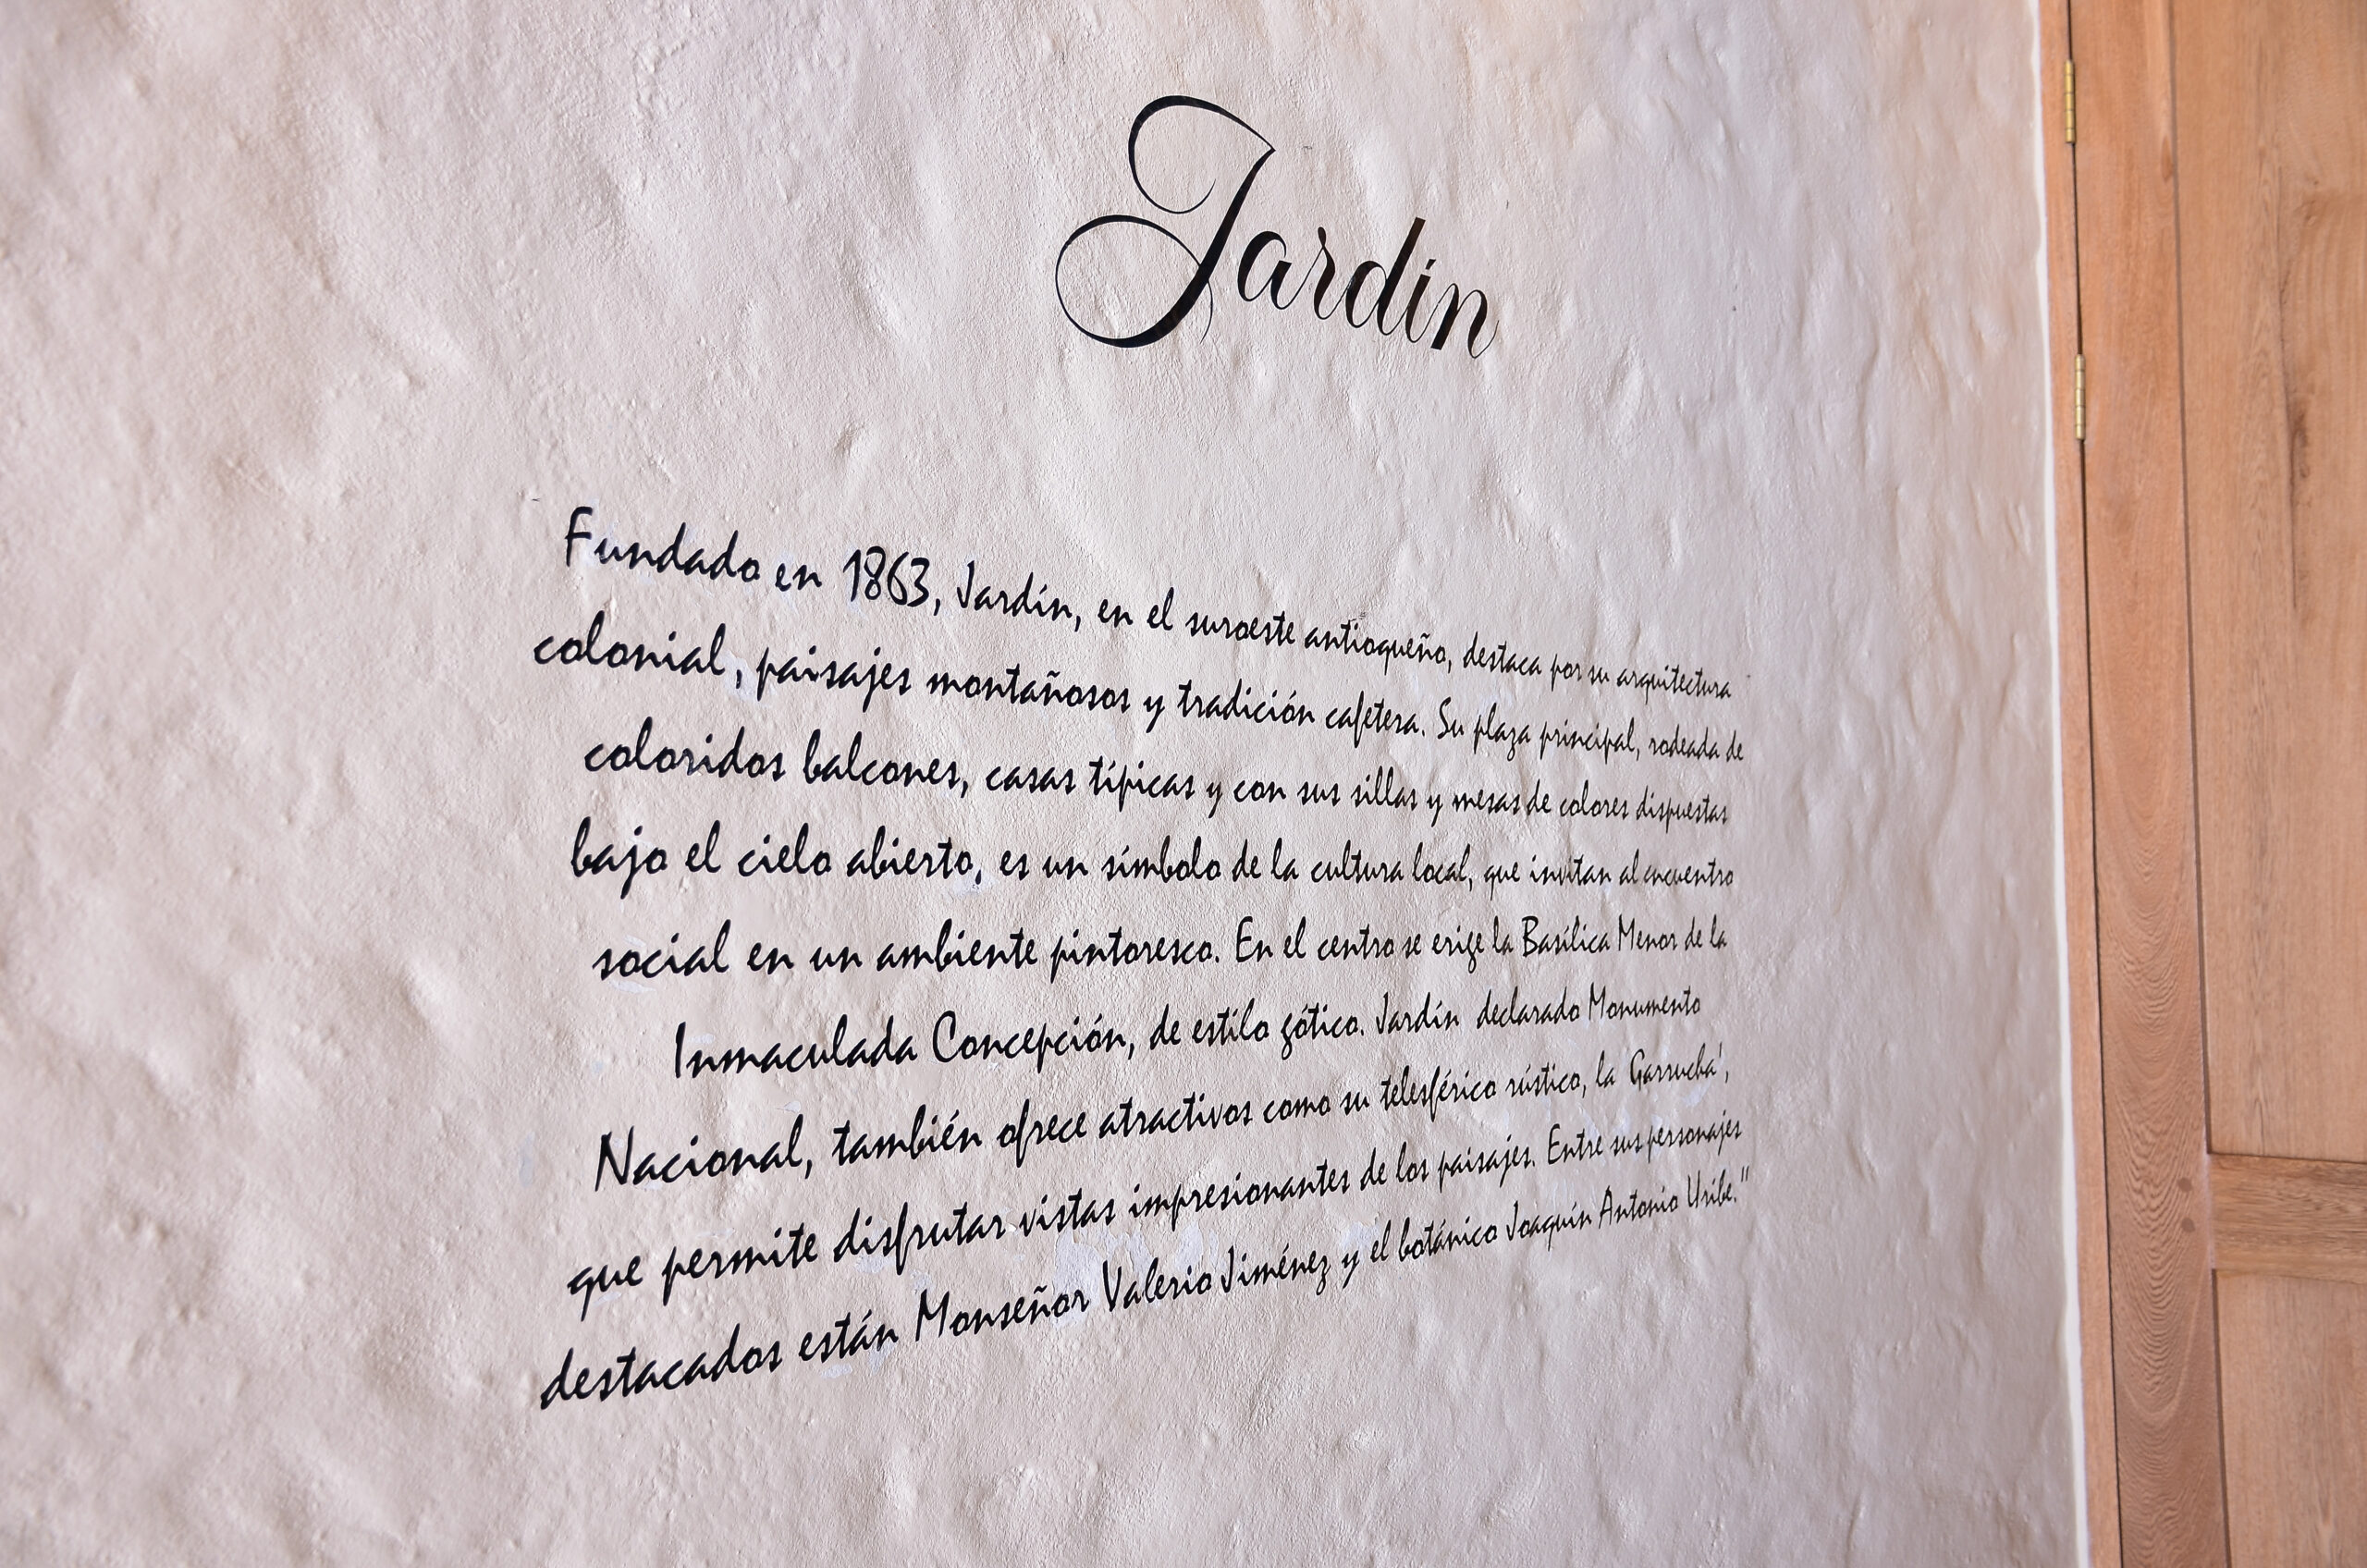 Jardín
Fundado en 1863, Jardín, en el suroeste antioqueño, destaca por su arquitectura
colonial, paisajes montañosos y tradición cafetera. Su plaza principal, rodeada de
coloridos balcones, casas típicas y con sus sillas y mesas de colores dispuestas
bajo el cielo abierto, es un símbolo de la cultura local, que invitan al encuentro
social en un ambiente pintoresco. En el centro se erige la Basílica Menor de la
Inmaculada Concepción, de estilo gótico. Jardín declarado Monumento
Nacional, también ofrece atractivos como su telesférico rústico, la Garrucha',
que permite disfrutar vistas impresionantes de los paisajes. Entre sus personajes
destacados están Monseñor Valerio Jiménez y el botánico Joaquín Antonio Uribe."